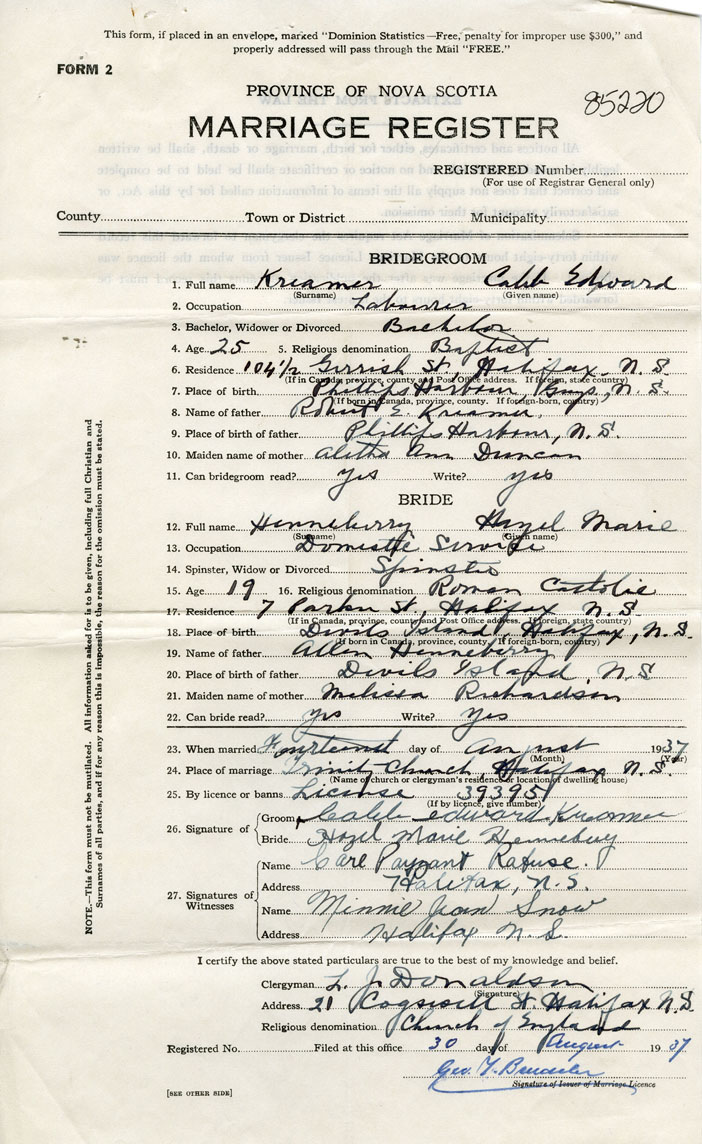 This form, if placed in an envelope, marked "Dominion Statistics—Free, penalty for improper use $300," and
properly addressed will pass through the Mail "FREE."
FORM 2
PROVINCE OF NOVA SCOTIA
85220
MARRIAGE REGISTER
REGISTERED Number
(For use of Registrar General only)
County Town or District Municipality
BRIDEGROOM
1. Full name Kreamer Caleb Edward
(Surname) (Given name)
2. Occupation Labourer
3. Bachelor, Widower or Divorced Bachelor
4. Age 25 5. Religious denomination Baptist
6. Residence 104½ Gerrish St, Halifax, N.S.
(If in Canada, province, county and Post Office address. If foreign, state country)
7. Place of birth Phillips Harbour Guys, N.S.
(If born in Canada, province, county. If foreign-born, country)
8. Name of father Robert E. Kreamer
9. Place of birth of father Phillips Harbour, N.S.
10. Maiden name of mother Aletha Ann Duncan
11. Can bridegroom read? yes Write? yes
BRIDE
12. Full name Henneberry Hazel Marie
(Surname) (Given name)
13. Occupation Domestic Service
14. Spinster, Widow or Divorced Spinster
15. Age 19 16. Religious denomination Roman Catholic
17. Residence 7 St, Halifax N.S.
(If in Canada, province, county and Post Office address. If foreign, state country)
18. Place of birth Devils Island, Halifax, N.S.
(If born in Canada, province, county. If foreign-born, country)
19. Name of father Allen Henneberry
20. Place of birth of father Devils Island, N.S
21. Maiden name of mother Melissa Richardson
22. Can bride read? yes Write? Yes
23. When married Fourteenth day of August 1937
(Month) (Year)
24. Place of marriage Trinity Church, Halifax N.S.
(Name of church or clergyman's residence or location of dwelling house)
25. By licence or banns License 39395
(If by licence, give number)
26. Signature of Groom Caleb Edward Kreamer
Bride Hazel Marie Henneberry
27. Signatures of Witnesses
Name Carl Rafuse.
Address Halifax, N.S.
Name Minnie Jean Snow
Address Halifax N.S.
I certify the above stated particulars are true to the best of my knowledge and belief.
Clergyman L. J. Donaldson
(Signature)
Address 21 Cogswell St. Halifax N.S.
Religious denomination Church of England
Registered No. Filed at this office 30 day of August 1937
Geo.
Signature of Issuer of Marriage Licence
[SEE OTHER SIDE]
NOTE.—This form must not be mutilated. All information asked for is to be given, including full Christian and
Surnames of all parties, and if for any reason this is impossible, the reason for the omission must be stated.